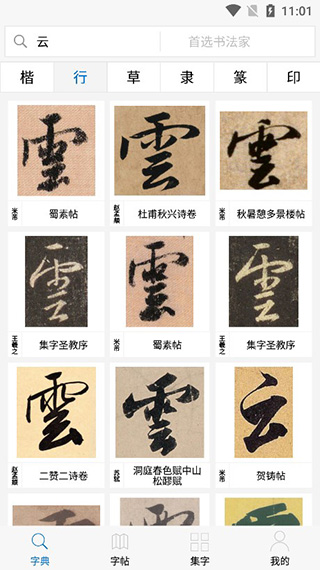 11:01
云 首选书法家
楷 行 草 隶 篆 印
雲 雲 雲
米芾 蜀素帖 赵孟頫 杜甫秋兴诗卷 米芾 秋暑憩多景楼帖
雲 雲 雲
王羲之 集字圣教序 米芾 蜀素帖 王羲之 集字圣教序
雲 雲 云
赵孟頫 二赞二诗卷 苏轼 洞庭春色赋中山
松醪赋 米芾 贺铸帖
字典 字帖 集字 我的